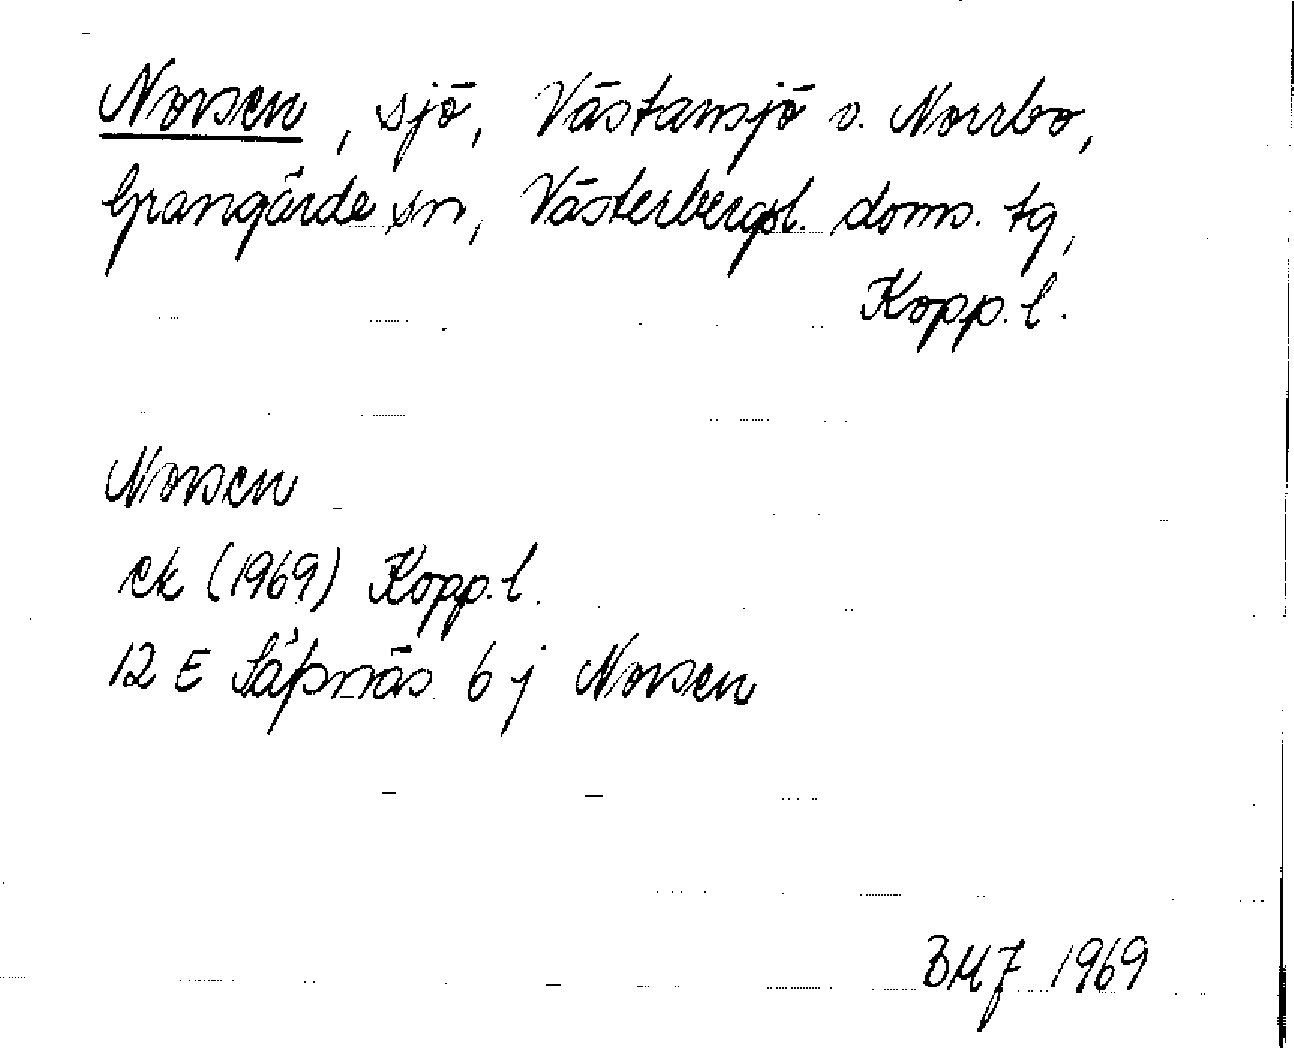 Norsen, sjö, Västansjö o. Norrbo,
Grangärde sn, Västerbergsl. doms. tg,
Kopp. l.
Norsen
ek (1969) Kopp. l.
12 E Säfsnäs 6 j Norsen
BMJ 1969